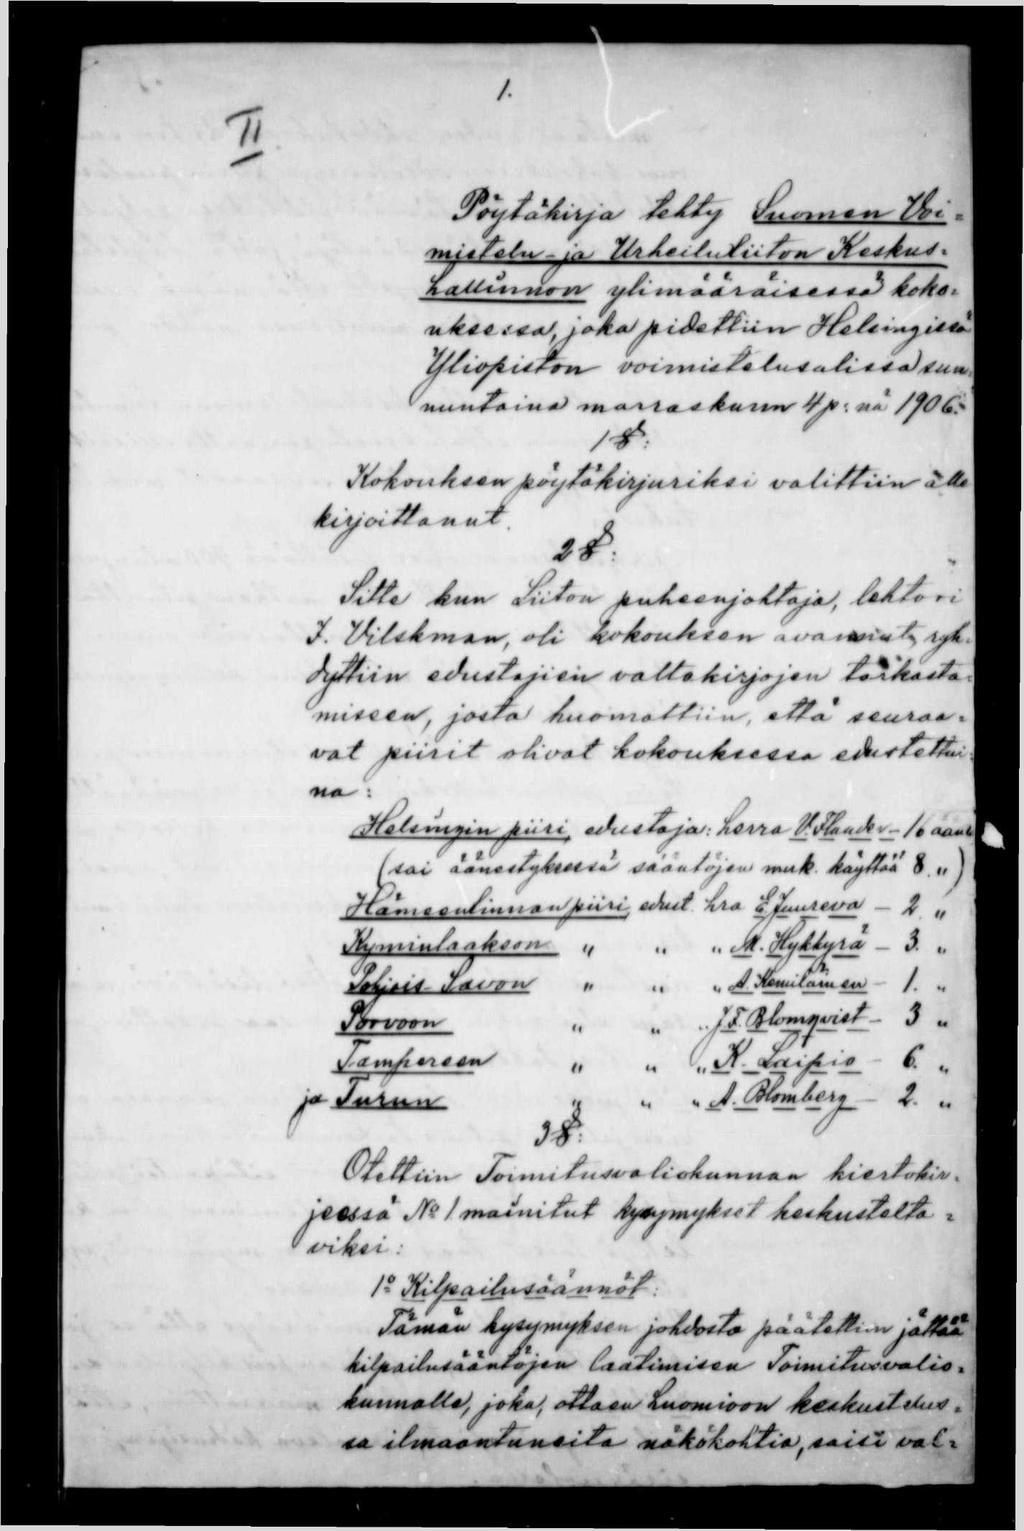 1.
II
Pöytäkirja tehty Suomen Voi=
mistelu- ja Urheiluliiton Keskus=
hallinnon ylimääräisessä koko=
uksessa, joka pidettiin Helsingissä
Yliopiston voimistelusalissa sun=
nuntaina marraskuun 4 p:nä 1906.
1 §:
Kokouksen pöytäkirjuriksi valittiin alle
kirjoittanut.
2 §:
Sitte kun Liiton puheenjohtaja, lehtori
I. Wilskman, oli kokouksen avannut, ryh=
dyttiin edustajien valtakirjojen tarkasta=
miseen, josta huomattiin, että seuraa=
vat piirit olivat kokouksessa edustettui=
na:
Helsingin piiri, edustaja: herra V. Flander - 16 ääntä
(sai äänestyksessä sääntöjen muk. käyttää 8 „)
Hämeenlinnan piiri, edust. hra E. Juureva - 2. „
Kyminlaakson „ „ „ M. Hykkyrä - 3. „
Pohjois-Savon „ „ „ A. Kemiläinen - 1. „
Porvoon „ „ „ J. F. Blomqvist - 3 „
Tampereen „ „ „ K. Laipio - 6. „
ja Turun „ „ „ A. Blomberg - 2. „
3 §:
Otettiin Toimitusvaliokunnan kiertokir=
jeessä No 1 mainitut kysymykset keskustelta=
viksi:
1o Kilpailusäännöt:
Tämän kysymyksen johdosta päätettiin jättää
kilpailusääntöjen laatimisen Toimitusvalio=
kunnalle, joka, ottaen huomioon keskustelus=
sa ilmaantuneita näkökohtia, saisi val=